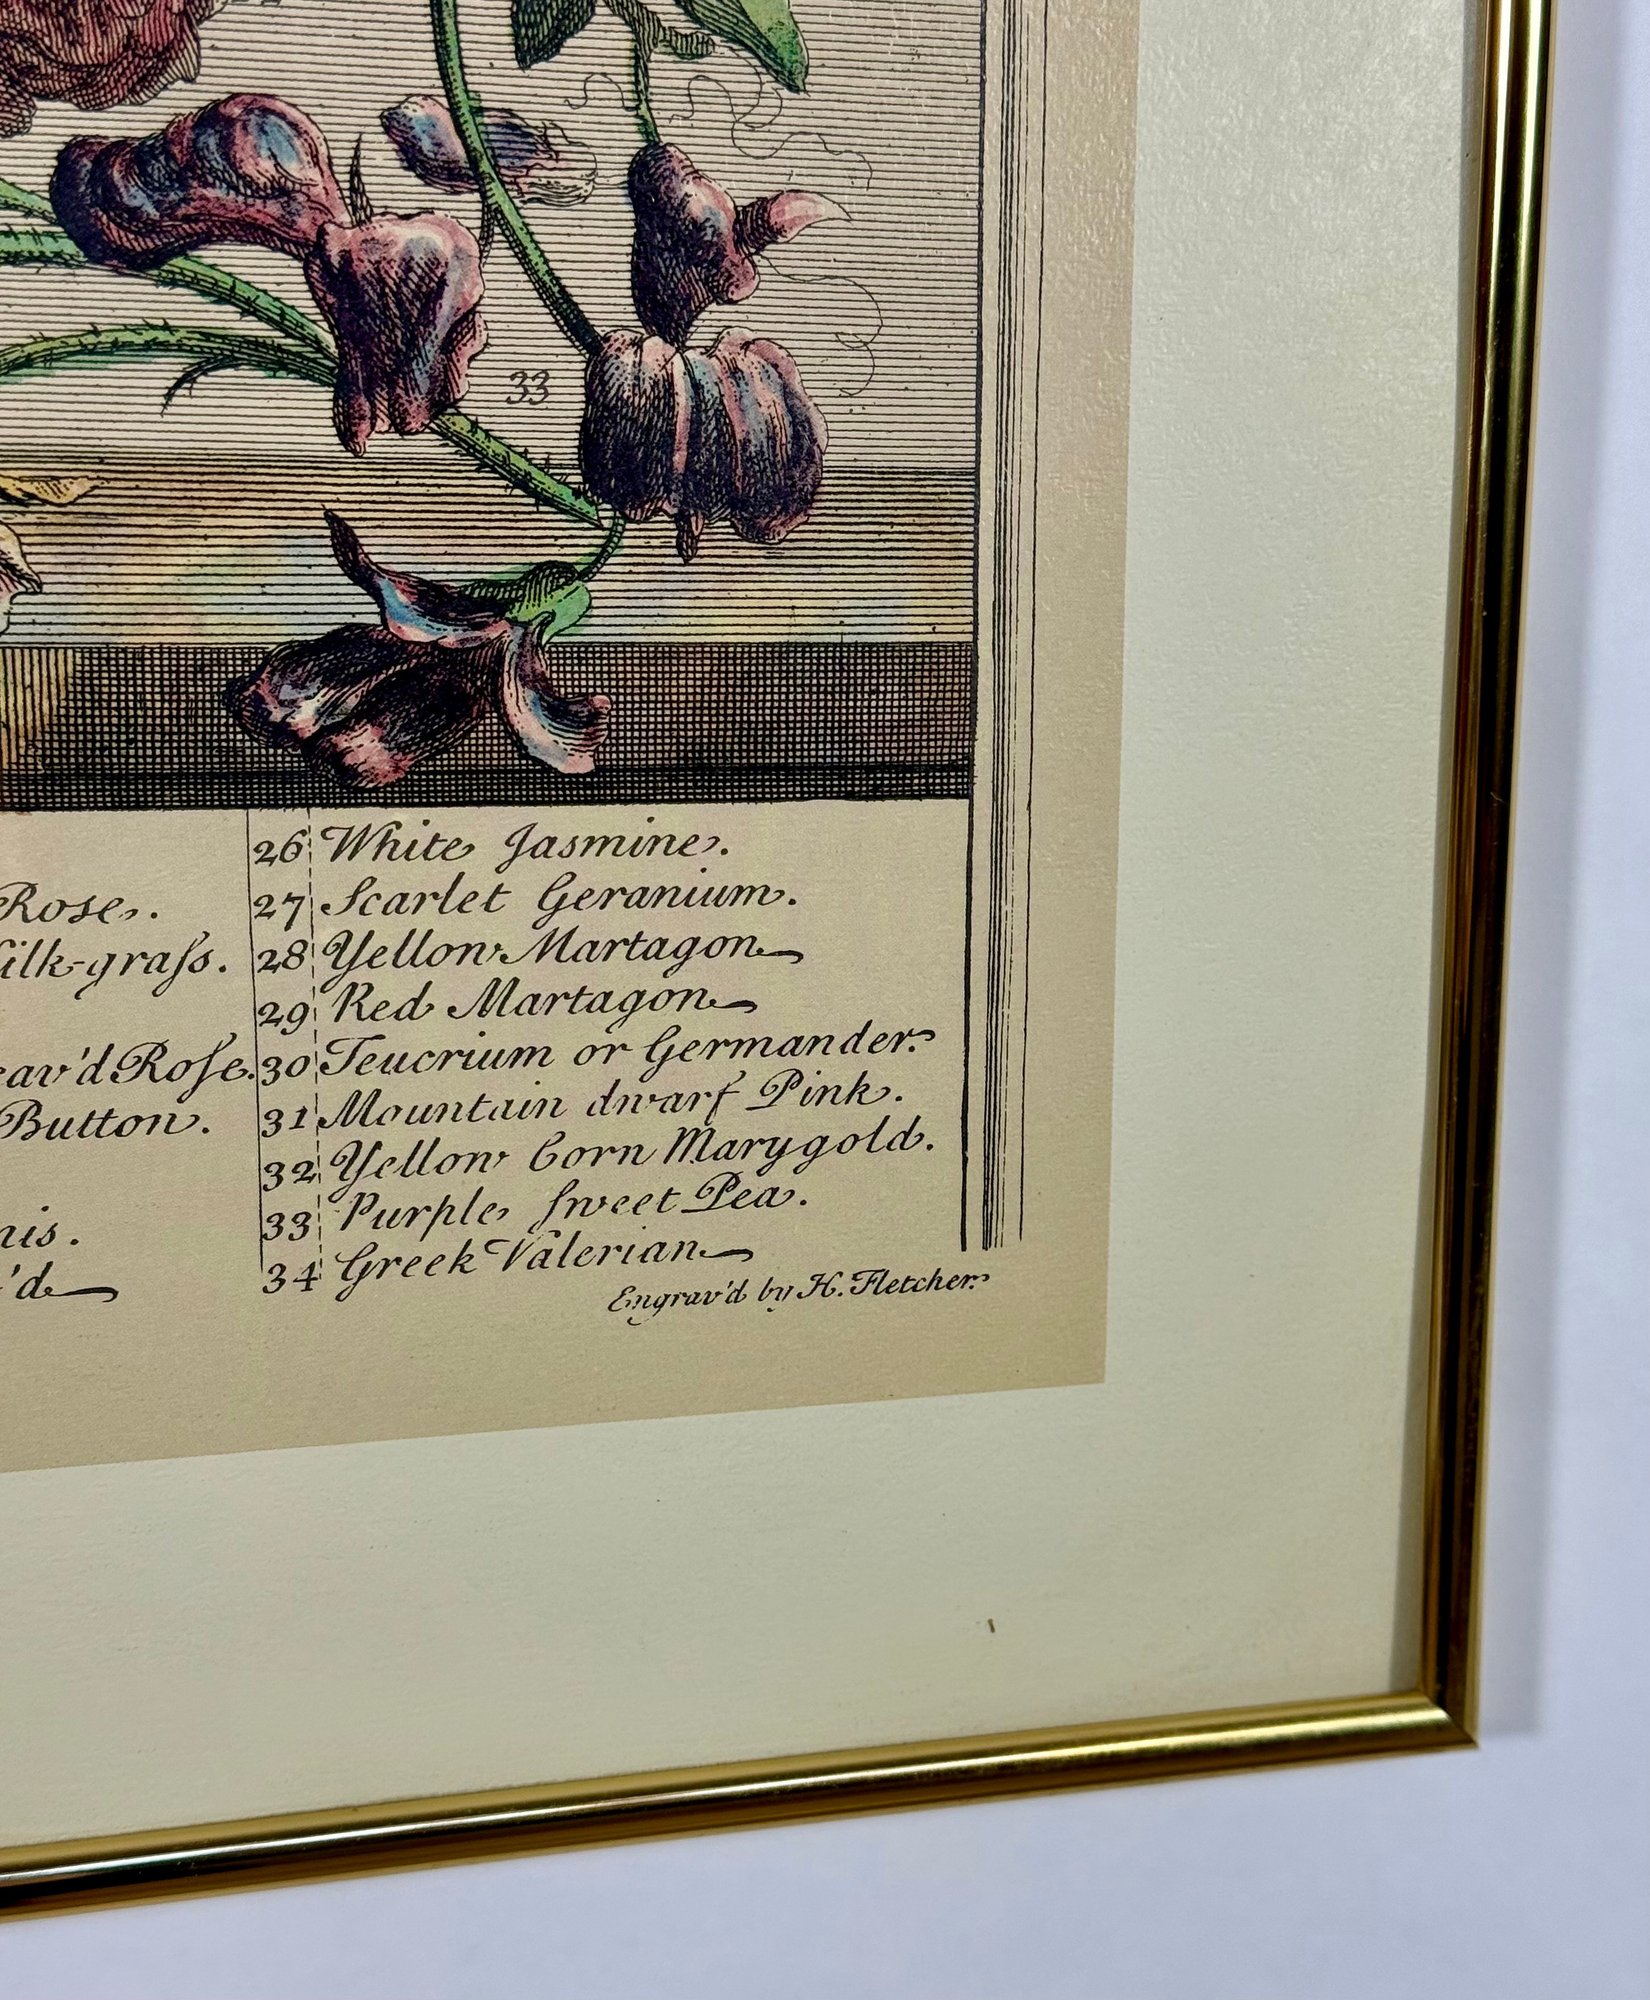 33
Rose.
Silk-graſs.
eav'd Roſe.
Button.
nis.
'd
26 White Jasmine.
27 Scarlet Geranium.
28 Yellow Martagon
29 Red Martagon
30 Teucrium or Germander.
31 Mountain dwarf Pink.
32 Yellow Corn Marygold.
33 Purple Sweet Pea.
34 Greek Valerian
Engrav'd by H. Fletcher.